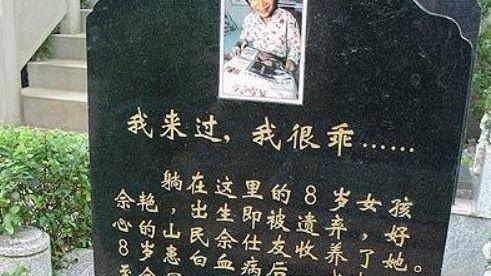 我来过，我很乖……
躺在这里的8岁女孩
余艳，出生即被遗弃，好
心的山民余仕友收养了她。
8岁患白血病后，